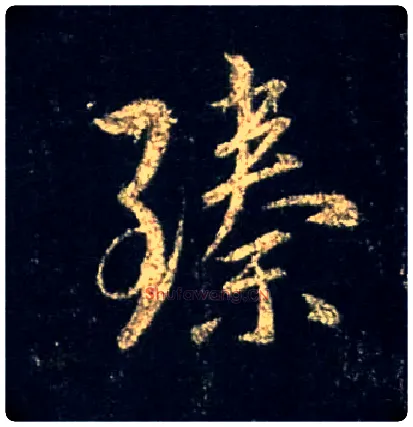 臻
Shufawang.CN